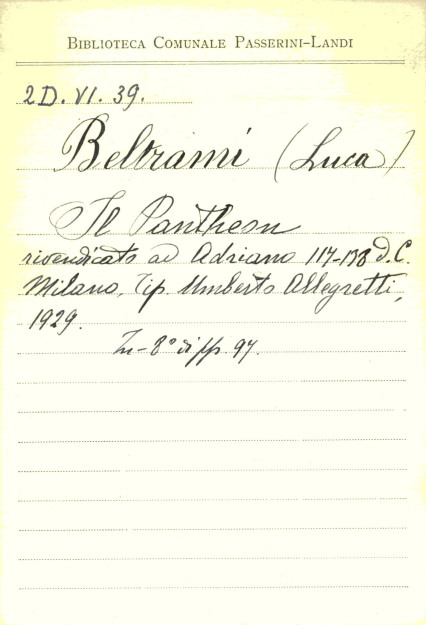 BIBLIOTECA COMUNALE PASSERINI-LANDI
2D. VI. 39.
Beltrami (Luca)
Il Pantheon
rivendicato ad Adriano 117-138 d.C.
Milano, Tip. Umberto Allegretti,
1929.
In-8° di pp. 97.